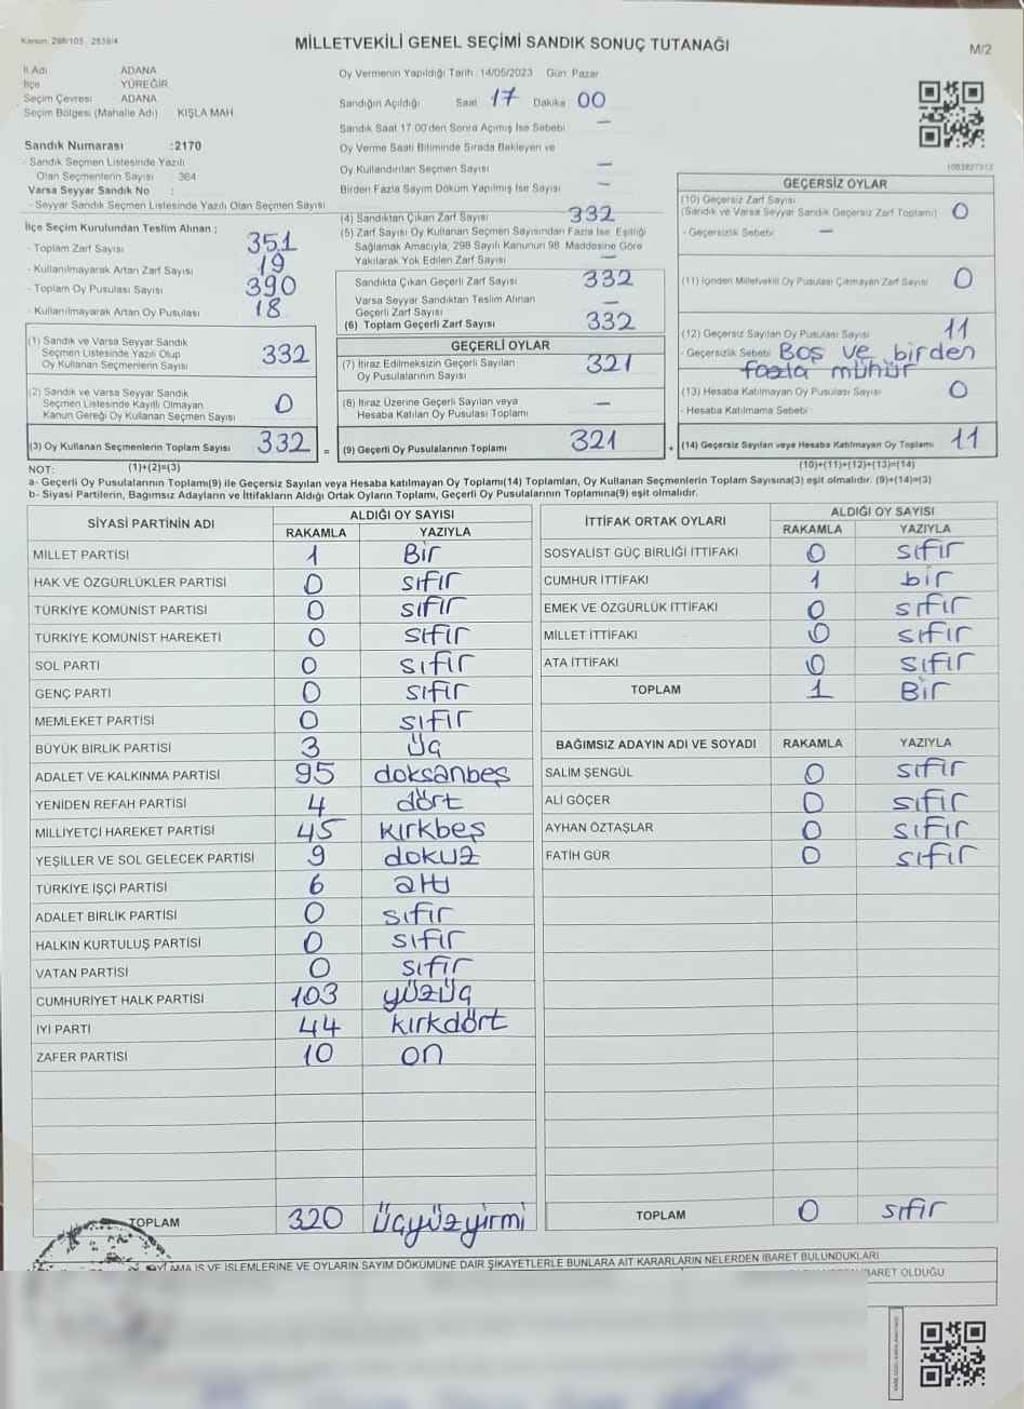 Kanun: 298/105, 2839/4
MİLLETVEKİLİ GENEL SEÇİMİ SANDIK SONUÇ TUTANAĞI
M/2
İl Adı ADANA
İlçe YÜREĞİR
Seçim Çevresi ADANA
Seçim Bölgesi (Mahalle Adı) KIŞLA MAH
Sandık Numarası :2170
- Sandık Seçmen Listesinde Yazılı
Olan Seçmenlerin Sayısı 364
Varsa Seyyar Sandık No :
- Seyyar Sandık Seçmen Listesinde Yazılı Olan Seçmen Sayısı
Oy Vermenin Yapıldığı Tarih :14/05/2023 Gün: Pazar
Sandığın Açıldığı Saat 17 Dakika 00
Sandık Saat 17.00'den Sonra Açılmış İse Sebebi —
Oy Verme Saati Bitiminde Sırada Bekleyen ve
Oy Kullandırılan Seçmen Sayısı —
Birden Fazla Sayım Döküm Yapılmış İse Sayısı —
İlçe Seçim Kurulundan Teslim Alınan ;
- Toplam Zarf Sayısı 351
- Kullanılmayarak Artan Zarf Sayısı 19
- Toplam Oy Pusulası Sayısı 390
- Kullanılmayarak Artan Oy Pusulası 18
(1) Sandık ve Varsa Seyyar Sandık
Seçmen Listesinde Yazılı Olup
Oy Kullanan Seçmenlerin Sayısı 332
(2) Sandık ve Varsa Seyyar Sandık
Seçmen Listesinde Kayıtlı Olmayan
Kanun Gereği Oy Kullanan Seçmen Sayısı 0
(3) Oy Kullanan Seçmenlerin Toplam Sayısı 332 =
(4) Sandıktan Çıkan Zarf Sayısı 332
(5) Zarf Sayısı Oy Kullanan Seçmen Sayısından Fazla İse, Eşitliği
Sağlamak Amacıyla, 298 Sayılı Kanunun 98. Maddesine Göre
Yakılarak Yok Edilen Zarf Sayısı —
Sandıkta Çıkan Geçerli Zarf Sayısı 332
Varsa Seyyar Sandıktan Teslim Alınan
Geçerli Zarf Sayısı —
(6) Toplam Geçerli Zarf Sayısı 332
GEÇERLİ OYLAR
(7) İtiraz Edilmeksizin Geçerli Sayılan
Oy Pusulalarının Sayısı 321
(8) İtiraz Üzerine Geçerli Sayılan veya
Hesaba Katılan Oy Pusulası Toplamı —
(9) Geçerli Oy Pusulalarının Toplamı 321 +
GEÇERSİZ OYLAR
(10) Geçersiz Zarf Sayısı
(Sandık ve Varsa Seyyar Sandık Geçersiz Zarf Toplamı) 0
- Geçersizlik Sebebi —
(11) İçinden Milletvekili Oy Pusulası Çıkmayan Zarf Sayısı 0
(12) Geçersiz Sayılan Oy Pusulası Sayısı 11
- Geçersizlik Sebebi Boş ve birden
fazla mühür
(13) Hesaba Katılmayan Oy Pusulası Sayısı 0
- Hesaba Katılmama Sebebi
(14) Geçersiz Sayılan veya Hesaba Katılmayan Oy Toplamı 11
NOT: (1)+(2)=(3) (10)+(11)+(12)+(13)=(14)
a- Geçerli Oy Pusulalarının Toplamı(9) ile Geçersiz Sayılan veya Hesaba katılmayan Oy Toplamı(14) Toplamları, Oy Kullanan Seçmenlerin Toplam Sayısına(3) eşit olmalıdır. (9)+(14)=(3)
b- Siyasi Partilerin, Bağımsız Adayların ve İttifakların Aldığı Ortak Oyların Toplamı, Geçerli Oy Pusulalarının Toplamına(9) eşit olmalıdır.
SİYASİ PARTİNİN ADI ALDIĞI OY SAYISI
RAKAMLA YAZIYLA
MİLLET PARTİSİ 1 Bir
HAK VE ÖZGÜRLÜKLER PARTİSİ 0 sıfır
TÜRKİYE KOMÜNİST PARTİSİ 0 sıfır
TÜRKİYE KOMÜNİST HAREKETİ 0 sıfır
SOL PARTİ 0 sıfır
GENÇ PARTİ 0 sıfır
MEMLEKET PARTİSİ 0 sıfır
BÜYÜK BİRLİK PARTİSİ 3 üç
ADALET VE KALKINMA PARTİSİ 95 doksanbeş
YENİDEN REFAH PARTİSİ 4 dört
MİLLİYETÇİ HAREKET PARTİSİ 45 kırkbeş
YEŞİLLER VE SOL GELECEK PARTİSİ 9 dokuz
TÜRKİYE İŞÇİ PARTİSİ 6 altı
ADALET BİRLİK PARTİSİ 0 sıfır
HALKIN KURTULUŞ PARTİSİ 0 sıfır
VATAN PARTİSİ 0 sıfır
CUMHURİYET HALK PARTİSİ 103 yüzüç
İYİ PARTİ 44 kırkdört
ZAFER PARTİSİ 10 on
TOPLAM 320 üçyüzyirmi
İTTİFAK ORTAK OYLARI ALDIĞI OY SAYISI
RAKAMLA YAZIYLA
SOSYALİST GÜÇ BİRLİĞİ İTTİFAKI 0 sıfır
CUMHUR İTTİFAKI 1 bir
EMEK VE ÖZGÜRLÜK İTTİFAKI 0 sıfır
MİLLET İTTİFAKI 0 sıfır
ATA İTTİFAKI 0 sıfır
TOPLAM 1 Bir
BAĞIMSIZ ADAYIN ADI VE SOYADI RAKAMLA YAZIYLA
SALİM ŞENGÜL 0 sıfır
ALİ GÖÇER 0 sıfır
AYHAN ÖZTAŞLAR 0 sıfır
FATİH GÜR 0 sıfır
TOPLAM 0 sıfır
İŞ VE İŞLEMLERİNE VE OYLARIN SAYIM DÖKÜMÜNE DAİR ŞİKAYETLERLE BUNLARA AİT KARARLARIN NELERDEN İBARET BULUNDUKLARI
İBARET OLDUĞU